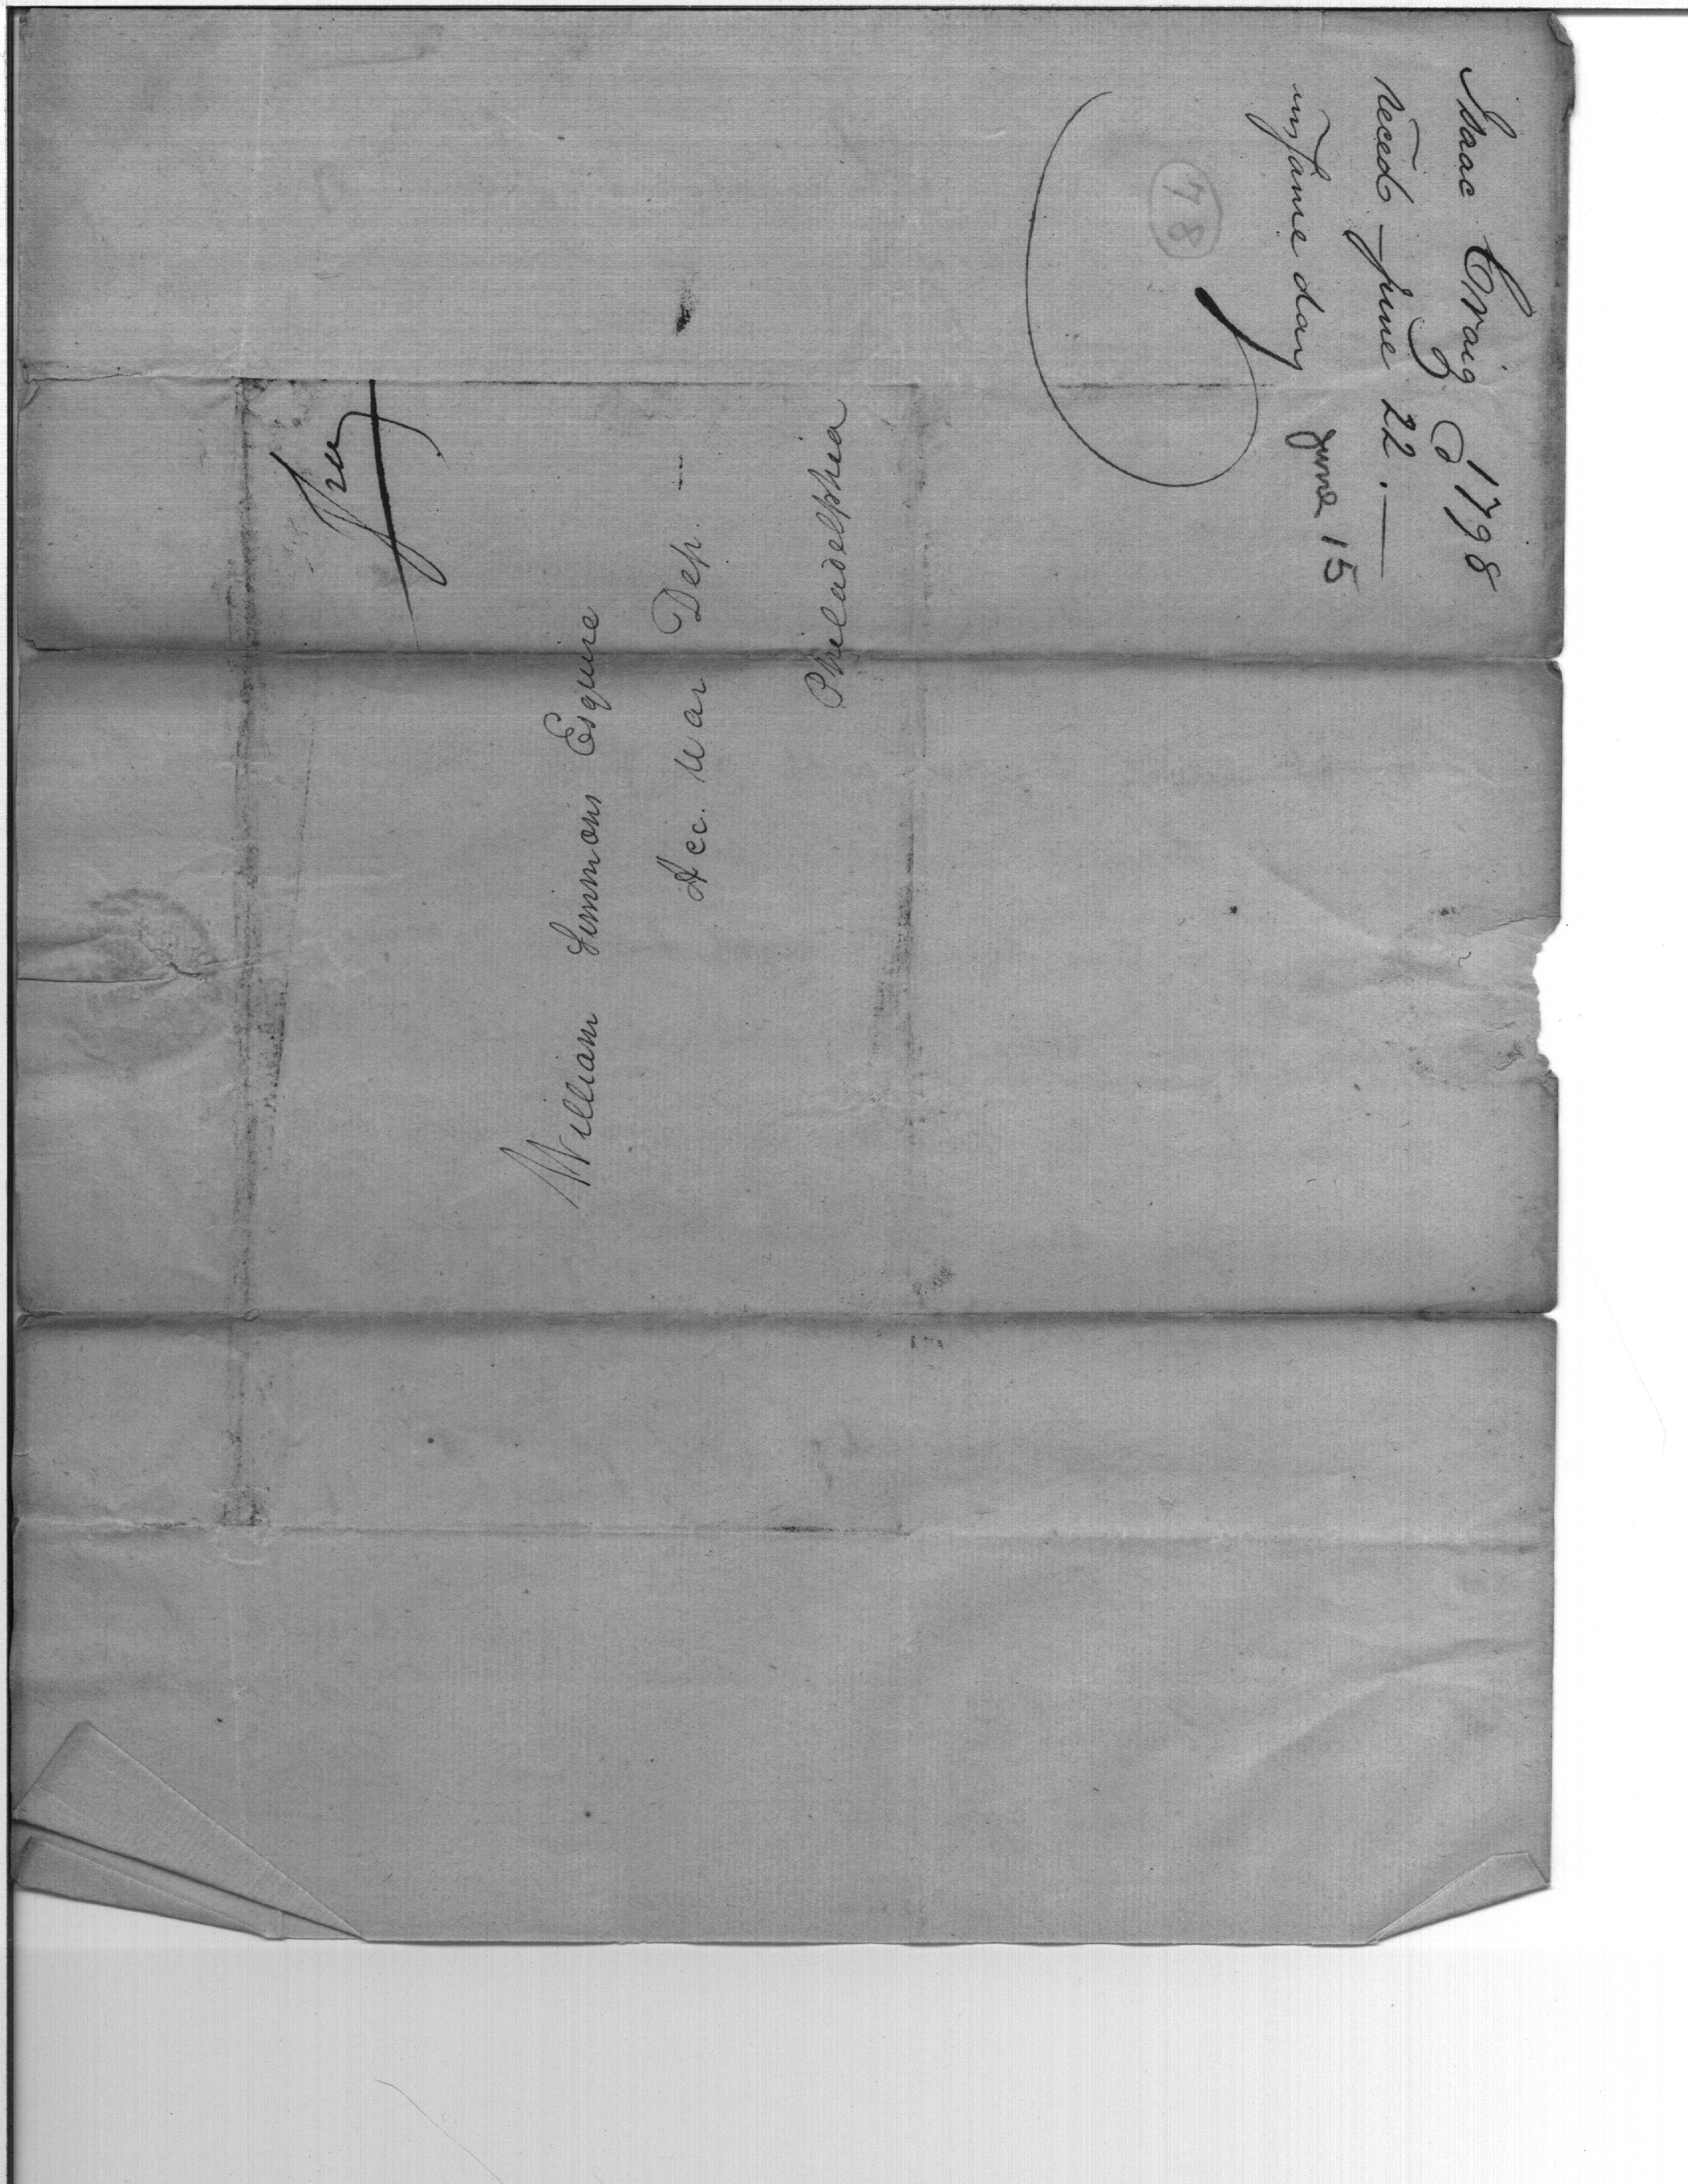 Isaac Craig 1798
Receed June 22. —
ans,, Same day
June 15
78
Free
William Simmons Esquire
Acc. War Dep. —
Philadelphia